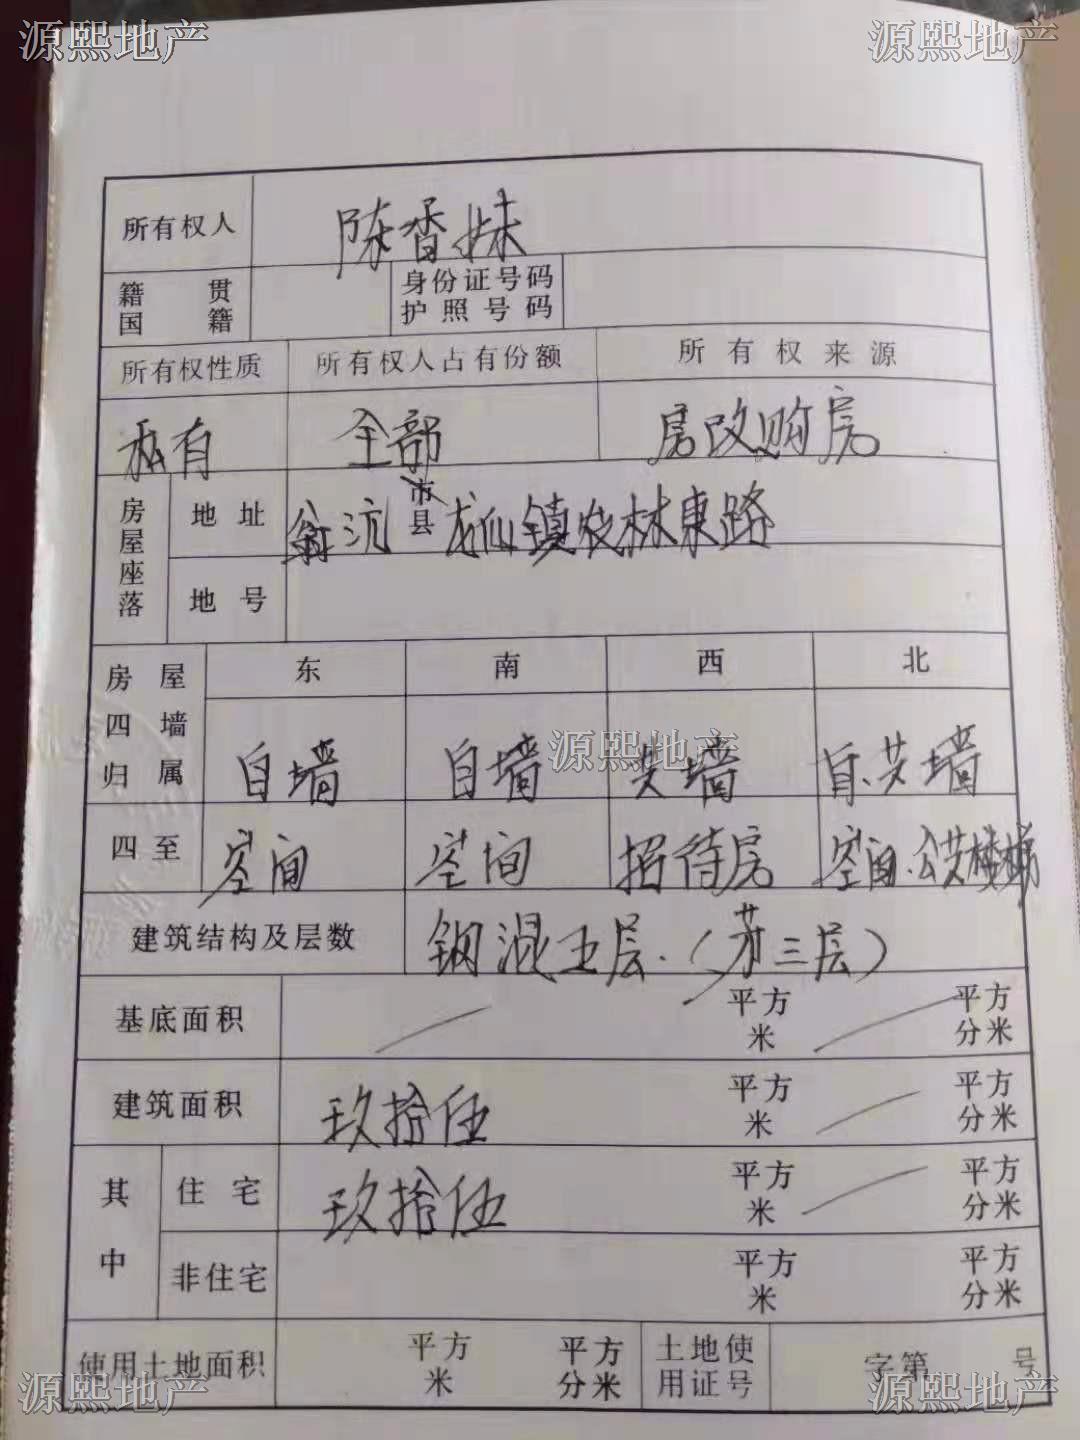 源熙地产 源熙地产
所有权人 陈香妹
籍贯 身份证号码
国籍 护照号码
所有权性质 所有权人占有份额 所有权来源
私有 全部 房改购房
房屋座落 地址 翁沅 市县 龙仙镇农林東路
地号
房屋四墙归属 东 南 西 北
自墙 自墙 共墙 自.共墙
源熙地产
四至 空间 空间 招待房 空间.公共楼梯
建筑结构及层数 钢混五层.(第三层)
基底面积 平方米 平方分米
建筑面积 玖拾伍 平方米 平方分米
其中 住宅 玖拾伍 平方米 平方分米
非住宅 平方米 平方分米
使用土地面积 平方米 平方分米 土地使用证号 字第 号
源熙地产 源熙地产